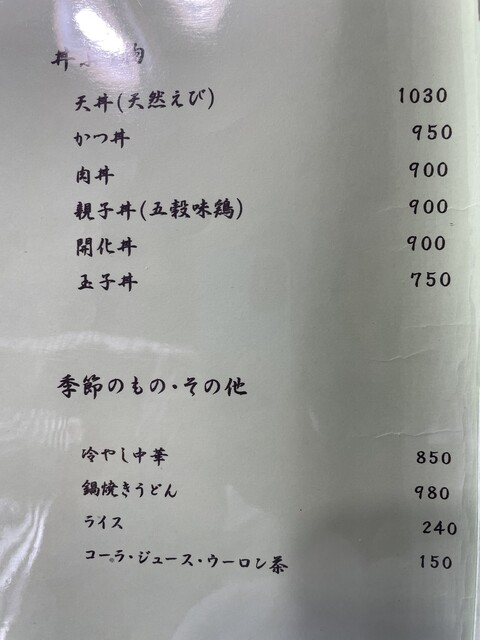 丼 物
天丼(天然えび) 1030
かつ丼 950
肉丼 900
親子丼(五穀味鶏) 900
開化丼 900
玉子丼 750
季節のもの・その他
冷やし中華 850
鍋焼きうどん 980
ライス 240
コーラ・ジュース・ウーロン茶 150